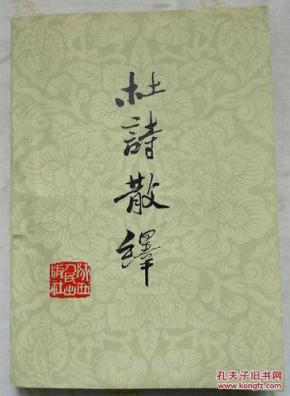 杜詩散繹
陕西
人民出
版社
孔夫子旧书网